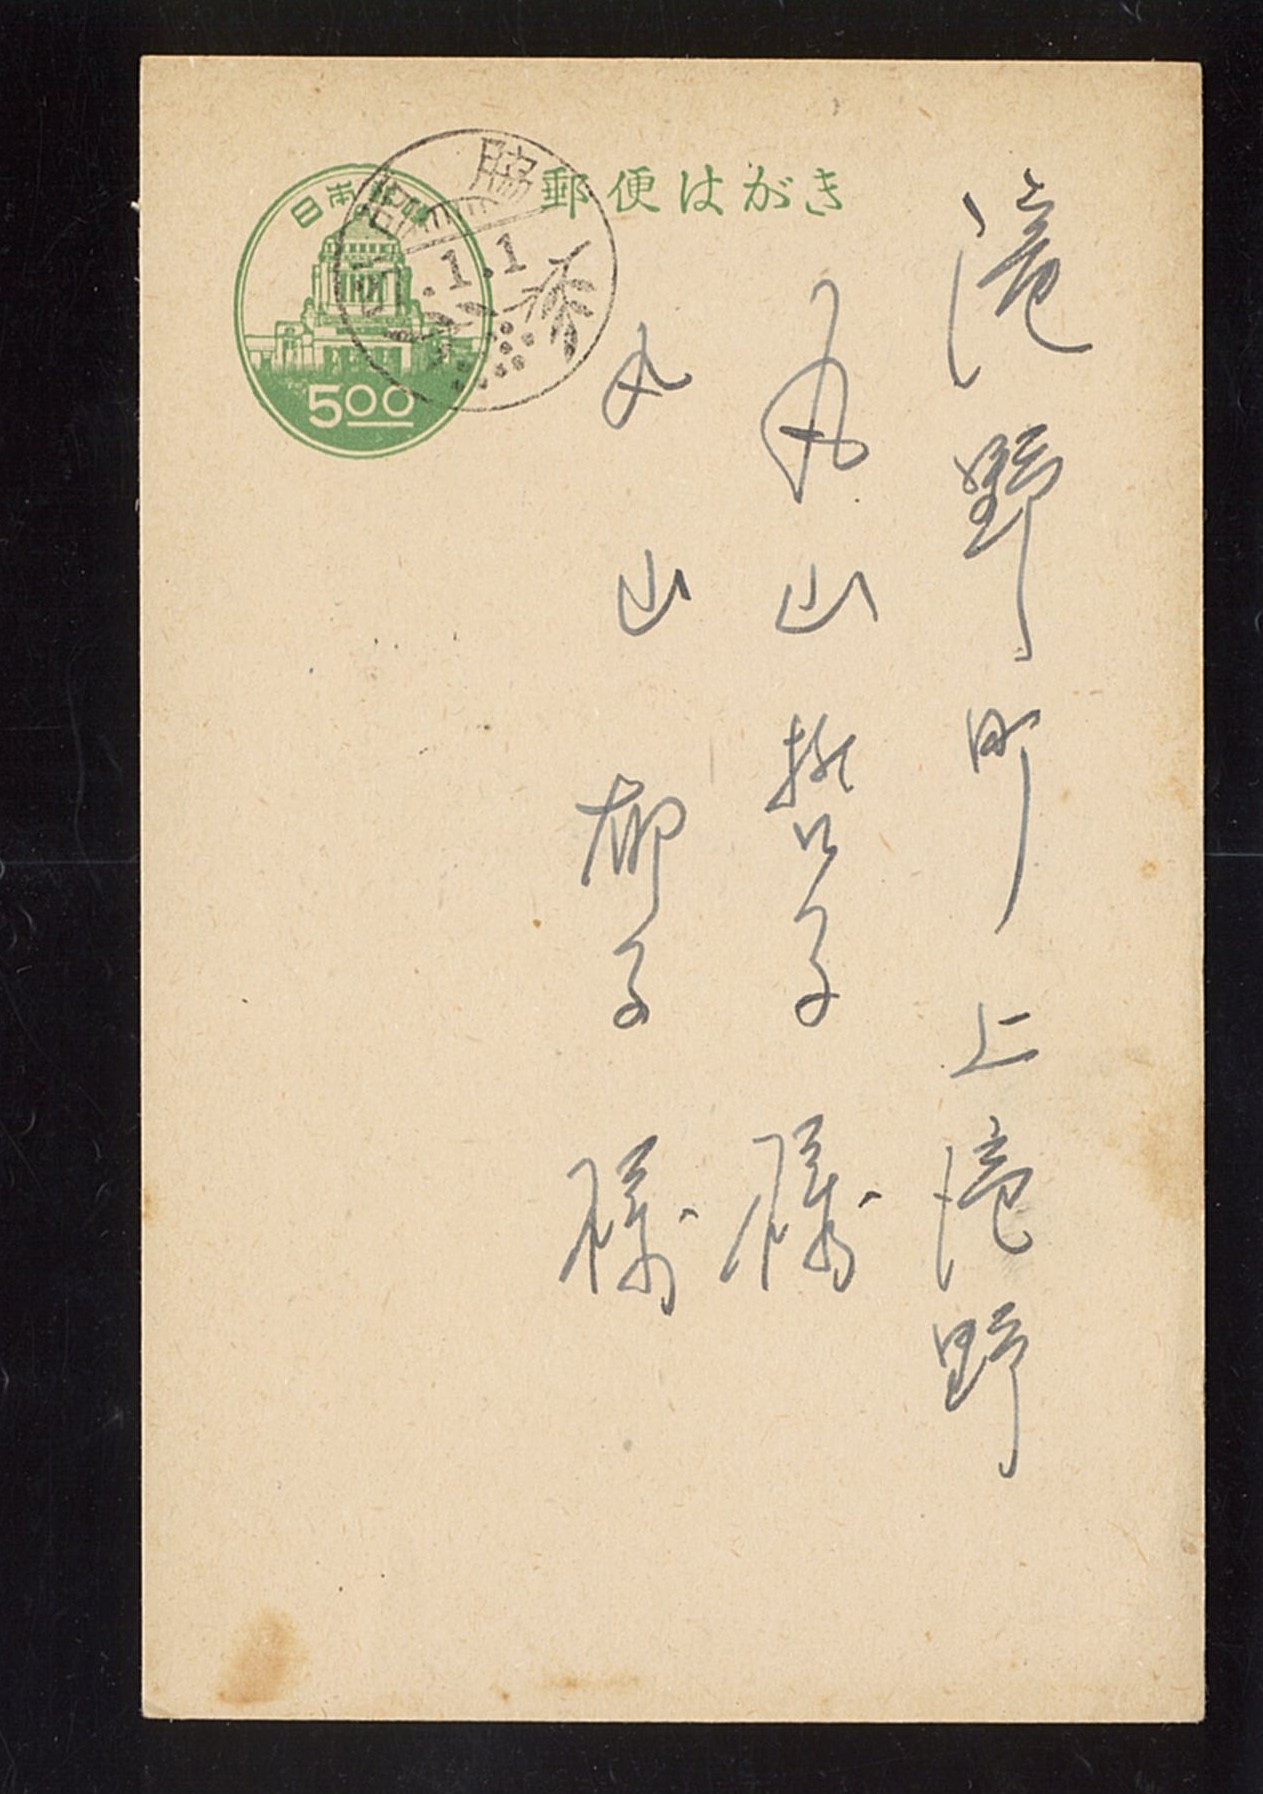 郵便はがき
日本郵便
500
脇
.1.1
滝野町上滝野
丸山哲子様
丸山郁子様